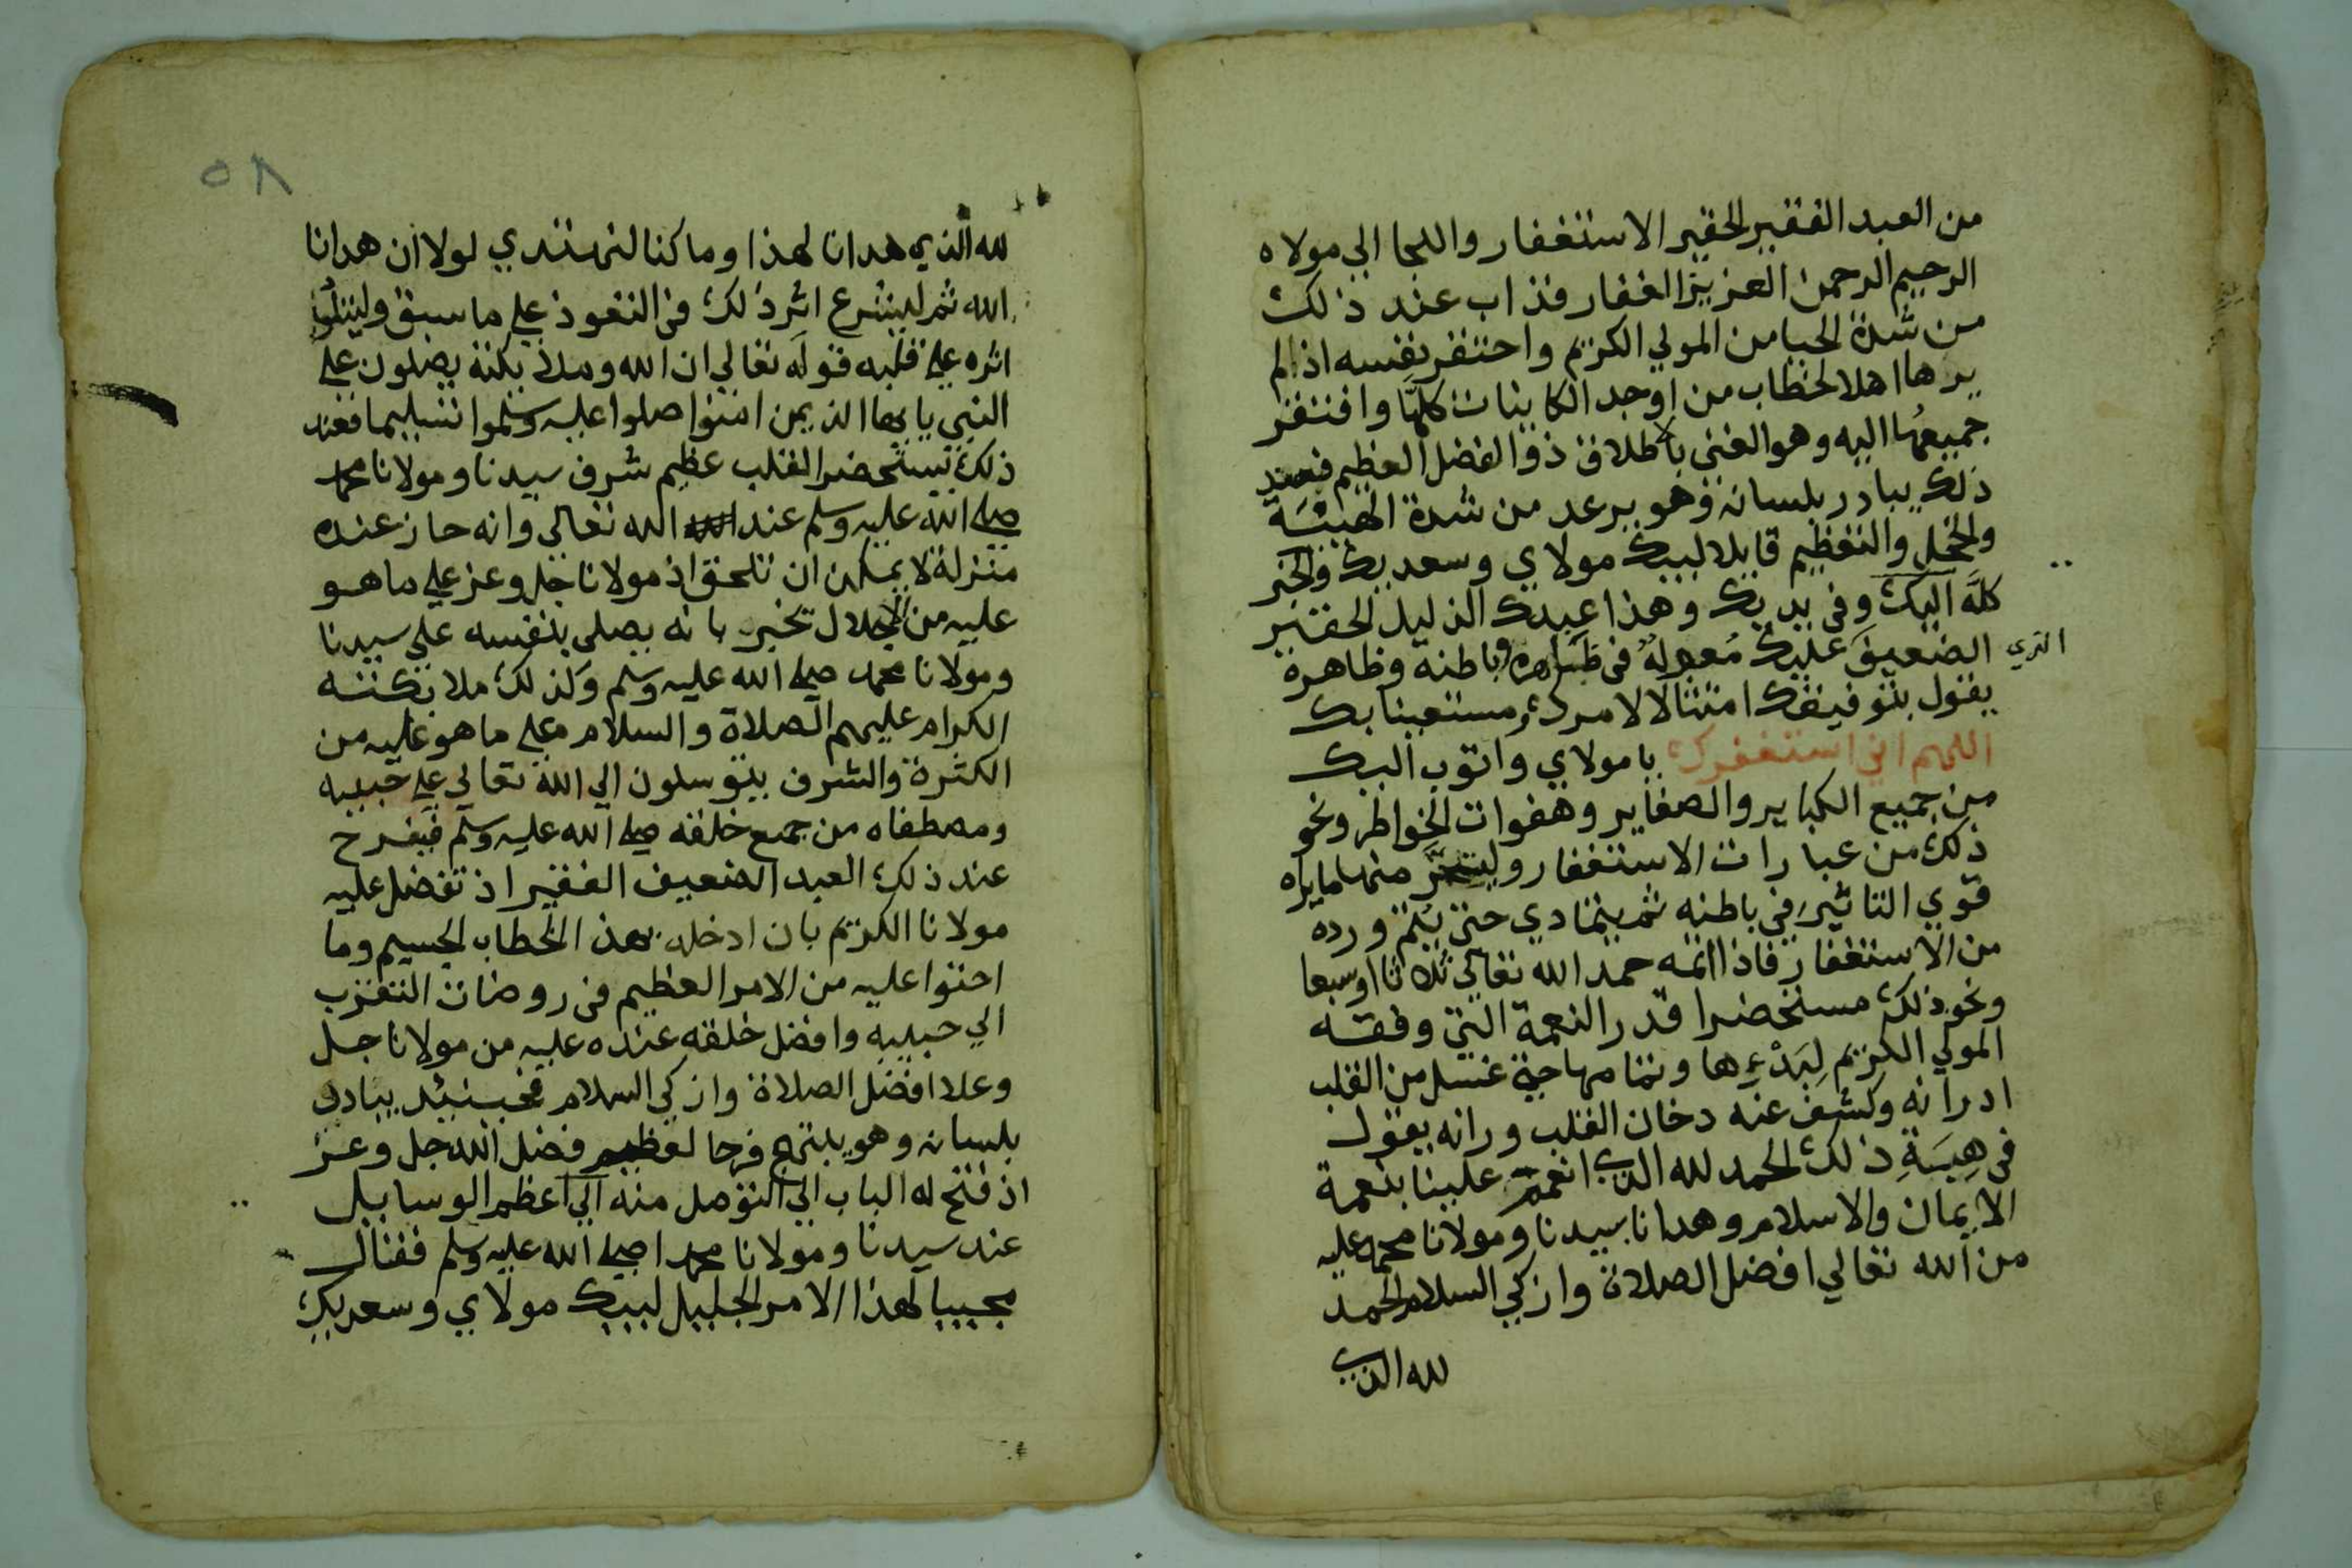 من العبد الفقير الحقير الاستغفار واللجا الي مولاه
الرحيم الرحمن العزيز الغفار فذاب عند ذلك
من شدة الحيا من المولي الكريم واحتقر نفسه اذ لم
يرها اهلا لخطاب من اوجد الكاينات كلها وافتقر
جميعها اليه وهو الغني باطلاق ذو الفضل العظيم فعند
ذلك يبادر بلسانه وهو يرعد من شدة الهيبة
والخجل والتعظيم قايلا لبيك مولاي وسعديك والخير
كله اليك وفي يديك وهذا عبدك الذليل الحقير
الضعيف عليك مُعوله في طهارة باطنه وظاهره
الذي
يقول بتوفيقك امتثالا لامرك مستعينا بك
اللهم اني استغفرك يا مولاي واتوب اليك
من جميع الكباير والصغاير وهفوات الخواطر ونحو
ذلك من عبارات الاستغفار وليتخير منها ما يراه
قوي التاثير في باطنه ثم يتمادي حتي يُتم ورده
من الاستغفار فاذا اتمه حمد الله تعالي ثلاثا او سبعا
ونحو ذلك مستحضرا قدر النعمة التي وفقه
المولي الكريم لبَدْءِها وتمامها حتي غسل من القلب
ادرانه وكشف عنه دخان القلب ورانه يقول
في هِيبَةِ ذلك الحمد لله الذي انعم علينا بنعمة
الايمان والاسلام وهدانا بسيدنا ومولانا محمد عليه
من الله تعالي افضل الصلاة وازكي السلام الحمد
لله الذي
٥٨
لله الذي هدانا لهذا وما كنا لنهتدي لولا ان هدانا
الله ثم ليشرع اثر ذلك في التعوذ علي ما سبق وليتلُ
اثره علي قلبه قوله تعالي ان الله وملائكته يصلون علي
النبي يايها الذين امنوا صلوا عليه وسلموا تسليما فعند
ذلك يستحضر القلب عظيم شرف سيدنا ومولانا محمد
صلي الله عليه وسلم عند الله تعالي وانه حاز عنده
منزلة لا يمكن ان تلحق اذ مولانا جل وعز علي ما هو
عليه من الجلال تخبر بانه يصلي بنفسه علي سيدنا
ومولانا محمد صلي الله عليه وسلم وكذلك ملائكته
الكرام عليهم الصلاة والسلام علي ما هو عليه من
الكثرة والشرف يتوسلون الي الله تعالي علي حبيبه
ومصطفاه من جميع خلقه صلي الله عليه وسلم فيفرح
عند ذلك العبد الضعيف الفقير اذ تفضل عليه
مولانا الكريم بان ادخله بهذ الخطاب الجسيم وما
احتوا عليه من الامر العظيم في روضات التقرب
الي حبيبه وافضل خلقه عنده عليه من مولانا جل
وعلا افضل الصلاة وازكي السلام فحينئذ يبادر
بلسانه وهو يبتهج فرحا لعظيم فضل الله جل وعز
اذ فتح له الباب الي التوصل منه الي اعظم الوسايل
عند سيدنا ومولانا محمدا صلي الله عليه وسلم فقال
مجيبا لهذا الامر الجليل لبيك مولاي وسعديك